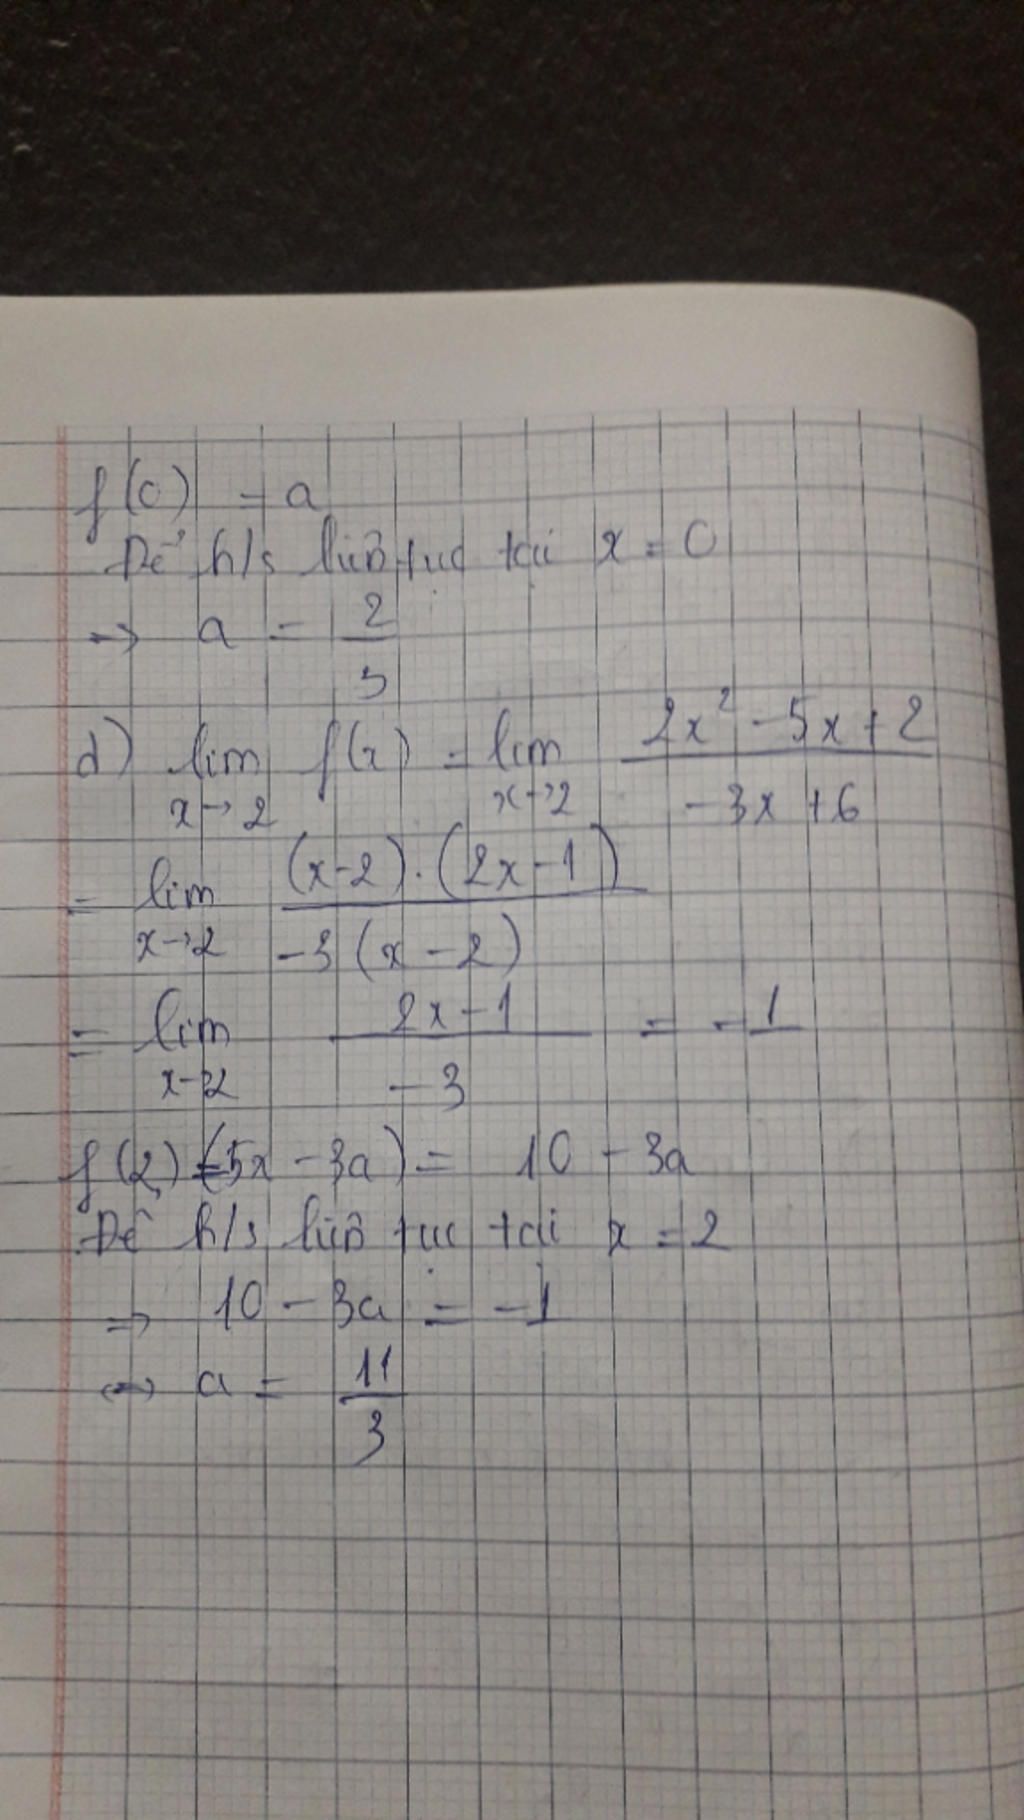 f(0) = a
Để h/s liên tục tại x = 0
→ a = 2/3
d) lim x→2 f(x) = lim x→2 (2x² - 5x + 2)/(-3x + 6)
= lim x→2 (x-2).(2x-1)/(-3(x-2))
= lim x→2 (2x-1)/(-3) = -1
f(2) = (5x - 3a) = 10 - 3a
Để h/s liên tục tại x = 2
⇒ 10 - 3a = -1
⇔ a = 11/3